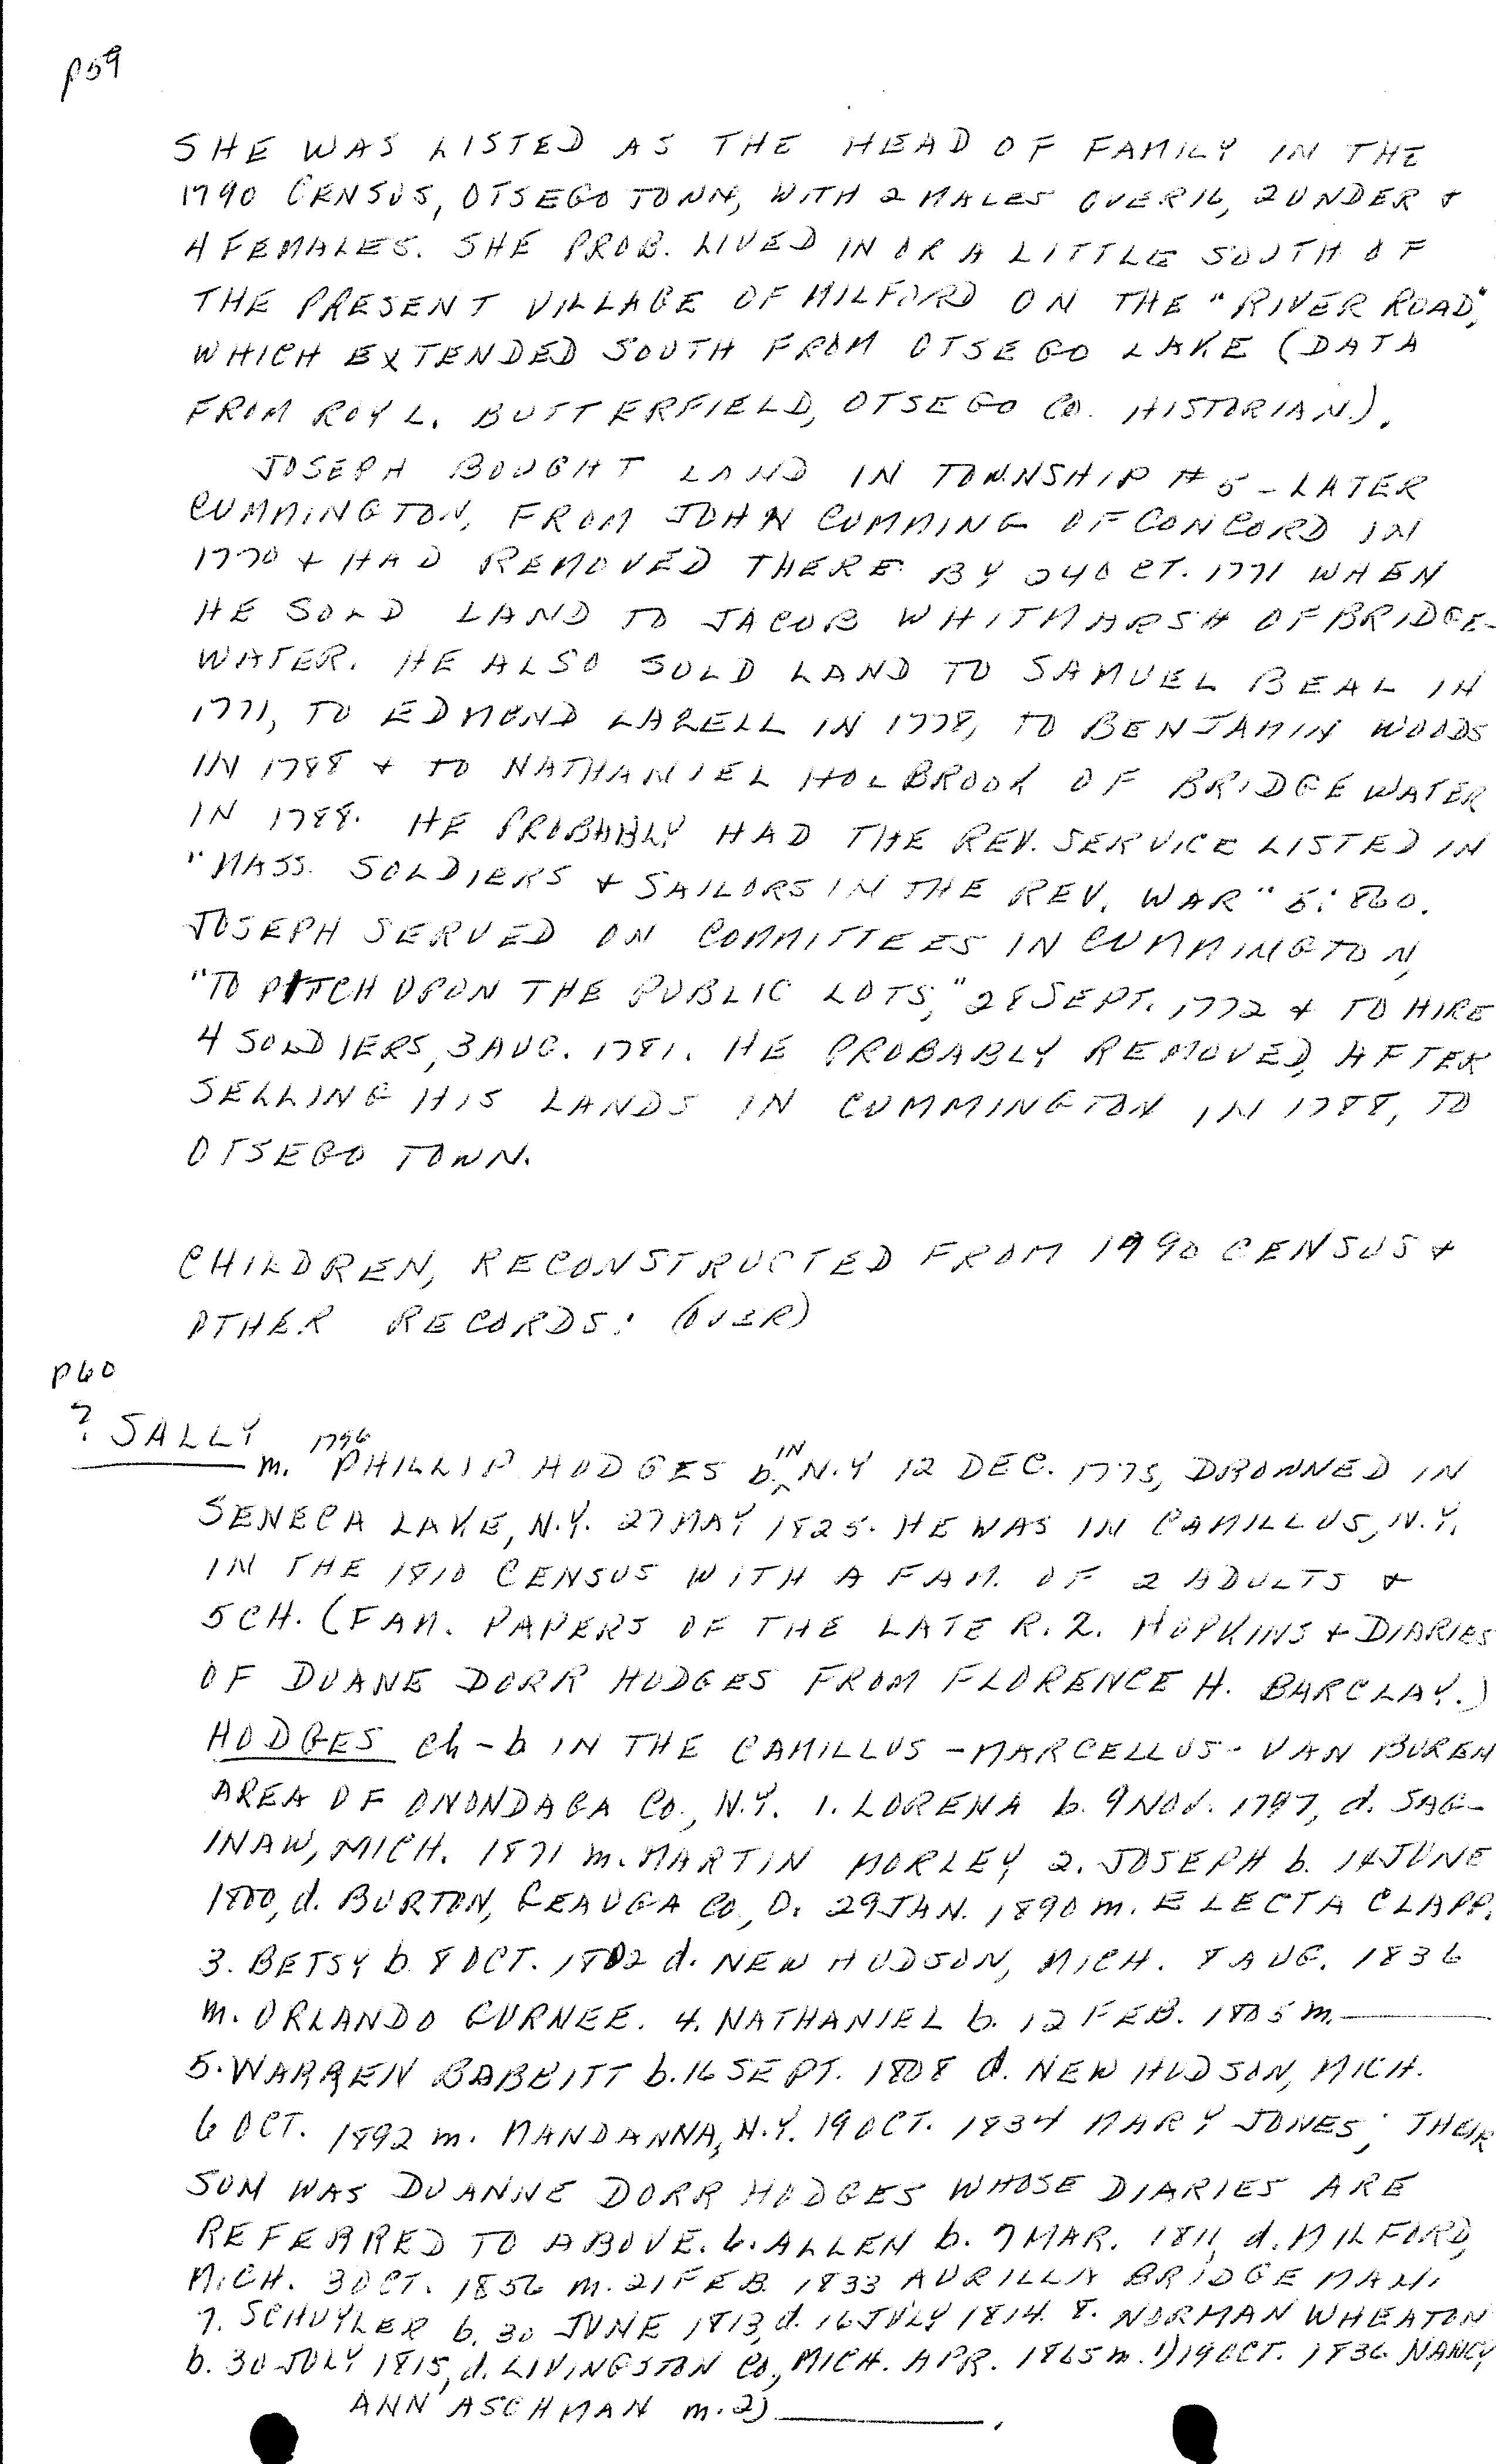 p59
SHE WAS LISTED AS THE HEAD OF FAMILY IN THE
1790 CENSUS, OTSEGO TOWN, WITH 2 MALES OVER 16, 2 UNDER +
4 FEMALES. SHE PROB. LIVED IN OR A LITTLE SOUTH OF
THE PRESENT VILLAGE OF MILFORD ON THE "RIVER ROAD",
WHICH EXTENDED SOUTH FROM OTSEGO LAKE (DATA
FROM ROY L. BUTTERFIELD, OTSEGO CO. HISTORIAN).
JOSEPH BOUGHT LAND IN TOWNSHIP #5 - LATER
CUMMINGTON, FROM JOHN CUMMING OF CONCORD IN
1770 + HAD REMOVED THERE BY 24 OCT. 1771 WHEN
HE SOLD LAND TO JACOB WHITMARSH OF BRIDGE-
WATER. HE ALSO SOLD LAND TO SAMUEL BEAL IN
1771, TO EDMOND LABELL IN 1778, TO BENJAMIN WOODS
IN 1788 + TO NATHANIEL HOLBROOK OF BRIDGEWATER
IN 1788. HE PROBABLY HAD THE REV. SERVICE LISTED IN
"MASS. SOLDIERS + SAILORS IN THE REV. WAR" 5:860.
JOSEPH SERVED ON COMMITTEES IN CUMMINGTON,
"TO PITCH UPON THE PUBLIC LOTS," 28 SEPT. 1772 + TO HIRE
4 SOLDIERS, 3 AUG. 1781. HE PROBABLY REMOVED, AFTER
SELLING HIS LANDS IN CUMMINGTON IN 1788, TO
OTSEGO TOWN.
CHILDREN, RECONSTRUCTED FROM 1990 CENSUS +
OTHER RECORDS: (OVER)
p60
? SALLY
m. 1796 PHILLIP HODGES b. IN N.Y 12 DEC. 1775, DROWNED IN
SENECA LAKE, N.Y. 27 MAY 1825. HE WAS IN CAMILLUS, N.Y.
IN THE 1810 CENSUS WITH A FAM. OF 2 ADULTS +
5 CH. (FAM. PAPERS OF THE LATE R. Z. HOPKINS + DIARIES
OF DUANE DORR HODGES FROM FLORENCE H. BARCLAY.)
HODGES ch - b IN THE CAMILLUS - MARCELLUS - VAN BUREN
AREA OF ONONDAGA CO., N.Y. 1. LORENA b. 9 NOV. 1797, d. SAG-
INAW, MICH. 1871 m. MARTIN MORLEY, 2. JOSEPH b. 14 JUNE
1800, d. BURTON, GEAUGA CO., O. 29 JAN. 1890 m. ELECTA CLAPP.
3. BETSY b. 8 OCT. 1802 d. NEW HUDSON, MICH. 8 AUG. 1836
m. ORLANDO GURNEE. 4. NATHANIEL b. 12 FEB. 1805 m.
5. WARREN BABBITT b. 16 SEPT. 1808 d. NEW HUDSON, MICH.
6 OCT. 1892 m. MANDANNA, N.Y. 19 OCT. 1834 MARY JONES; THEIR
SON WAS DUANNE DORR HODGES WHOSE DIARIES ARE
REFERRED TO ABOVE. 6. ALLEN b. 7 MAR. 1811, d. MILFORD,
MICH. 3 OCT. 1856 m. 21 FEB. 1833 AURILLA BRIDGEMAN.
7. SCHUYLER b. 30 JUNE 1813, d. 16 JULY 1814. 8. NORMAN WHEATON
b. 30 JULY 1815, d. LIVINGSTON CO., MICH. APR. 1865 m. 1) 19 OCT. 1836 NANCY
ANN ASCHMAN m. 2)